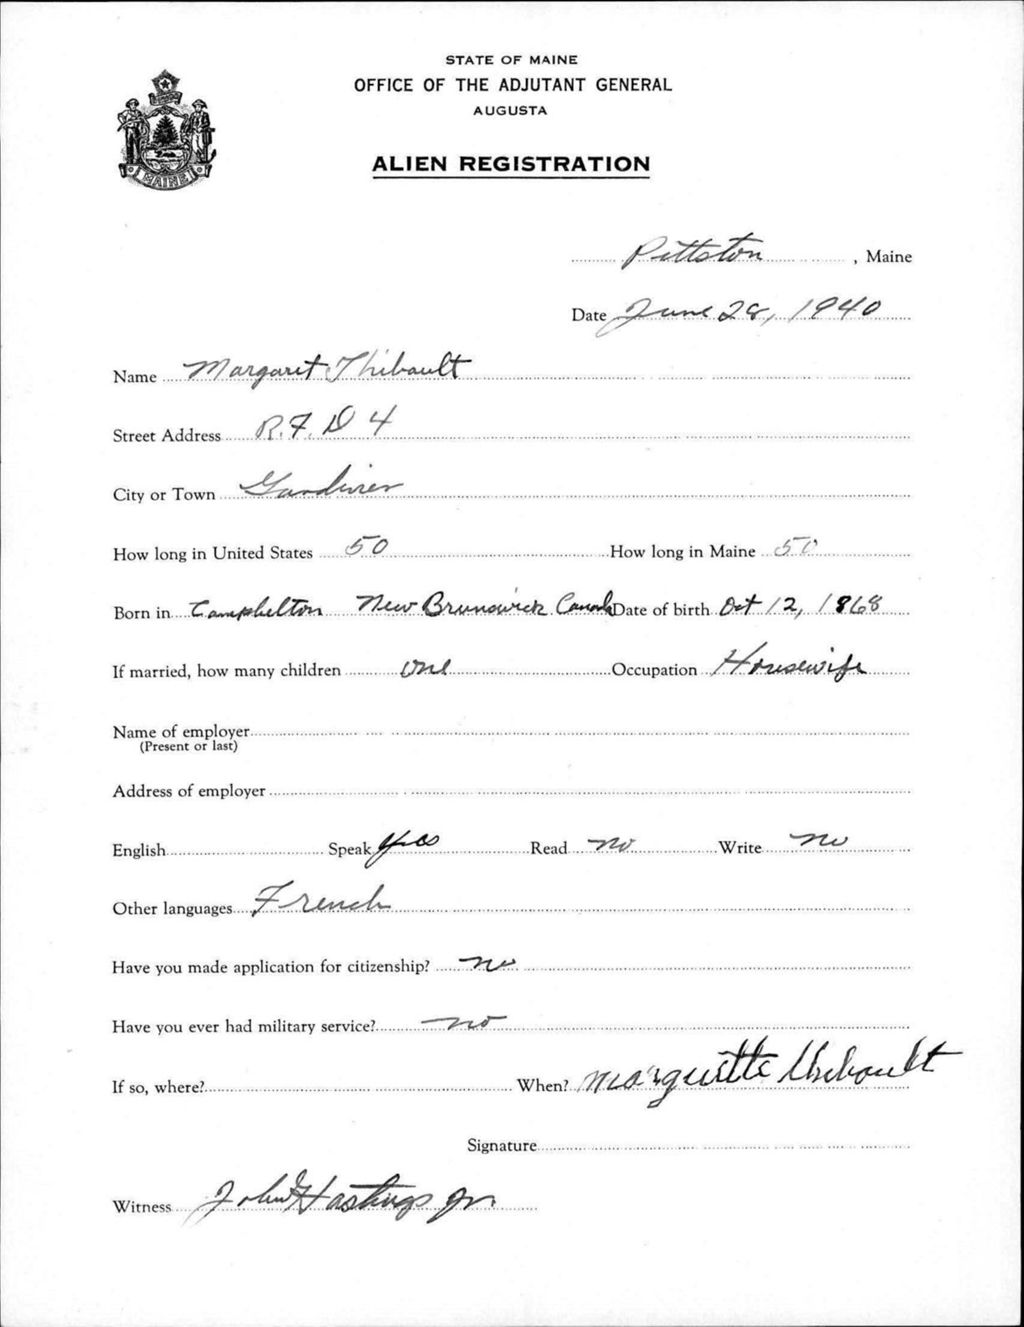 STATE OF MAINE
OFFICE OF THE ADJUTANT GENERAL
AUGUSTA
ALIEN REGISTRATION
MAINE
Pittston, Maine
Date June 28, 1940
Name Margaret Thibault
Street Address R.F.D 4
City or Town Gardiner
How long in United States 50 How long in Maine 50
Born in Campbelton New Brunswick Canada Date of birth Oct 12, 1868
If married, how many children one Occupation Housewife
Name of employer
(Present or last)
Address of employer
English Speak yes Read no Write no
Other languages French
Have you made application for citizenship? no
Have you ever had military service? no
If so, where? When? Marguitte Thibault
Signature
Witness John H Hastings Jr.